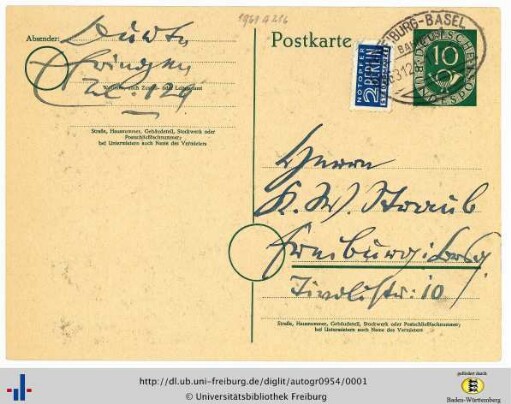 1961 A 216
Absender:
Postkarte
FREIBURG-BASEL
10
DEUTSCHE BUNDESPOST
NOTOPFER
2 BERLIN
STEUERMARKE
Wohnort, auch Zustell- oder Leitpostamt
Straße, Hausnummer, Gebäudeteil, Stockwerk oder
Postschließfachnummer;
bei Untermietern auch Name des Vermieters
Herrn
K. W. Straub
Freiburg i. Brsg.
Tivolistr. 10
Straße, Hausnummer, Gebäudeteil, Stockwerk oder Postschließfachnummer;
bei Untermietern auch Name des Vermieters
http://dl.ub.uni-freiburg.de/diglit/autogr0954/0001
© Universitätsbibliothek Freiburg
gefördert durch
Baden-Württemberg